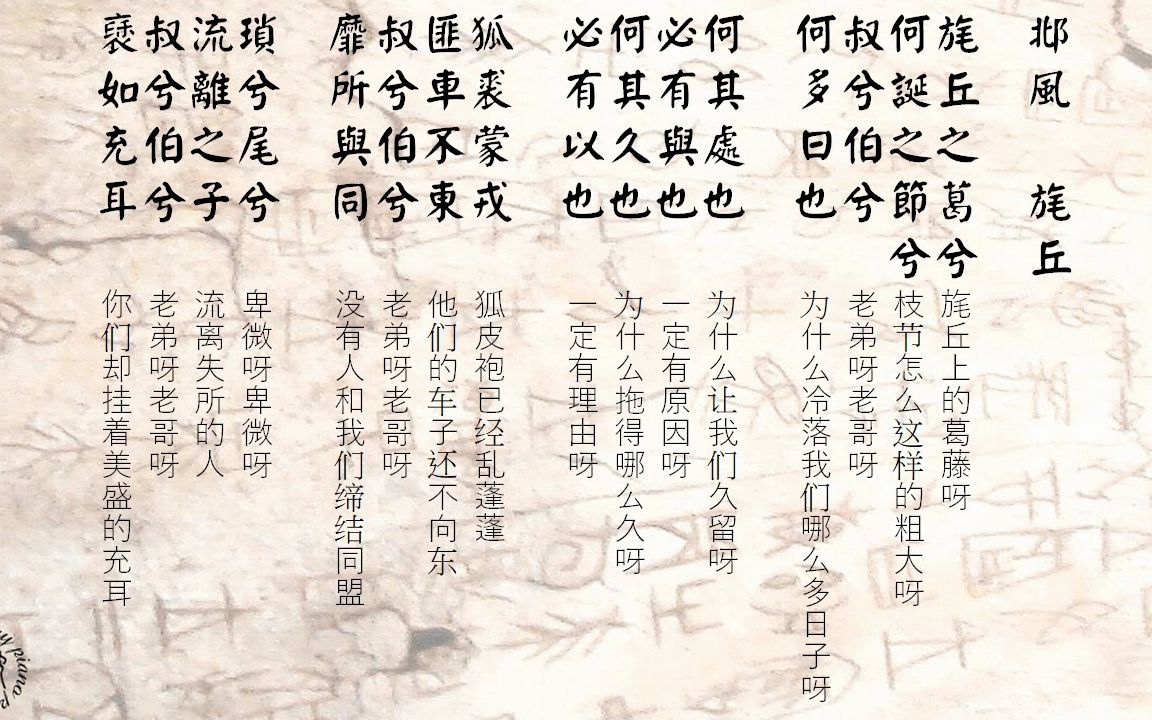 邶風 旄丘
旄丘之葛兮
何誕之節兮
叔兮伯兮
何多日也
何其處也
必有與也
何其久也
必有以也
狐裘蒙戎
匪車不東
叔兮伯兮
靡所與同
瑣兮尾兮
流離之子
叔兮伯兮
褎如充耳
旄丘上的葛藤呀
枝节怎么这样的粗大呀
老弟呀老哥呀
为什么冷落我们哪么多日子呀
为什么让我们久留呀
一定有原因呀
为什么拖得哪么久呀
一定有理由呀
狐皮袍已经乱蓬蓬
他们的车子还不向东
老弟呀老哥呀
没有人和我们缔结同盟
卑微呀卑微呀
流离失所的人
老弟呀老哥呀
你们却挂着美盛的充耳
piano